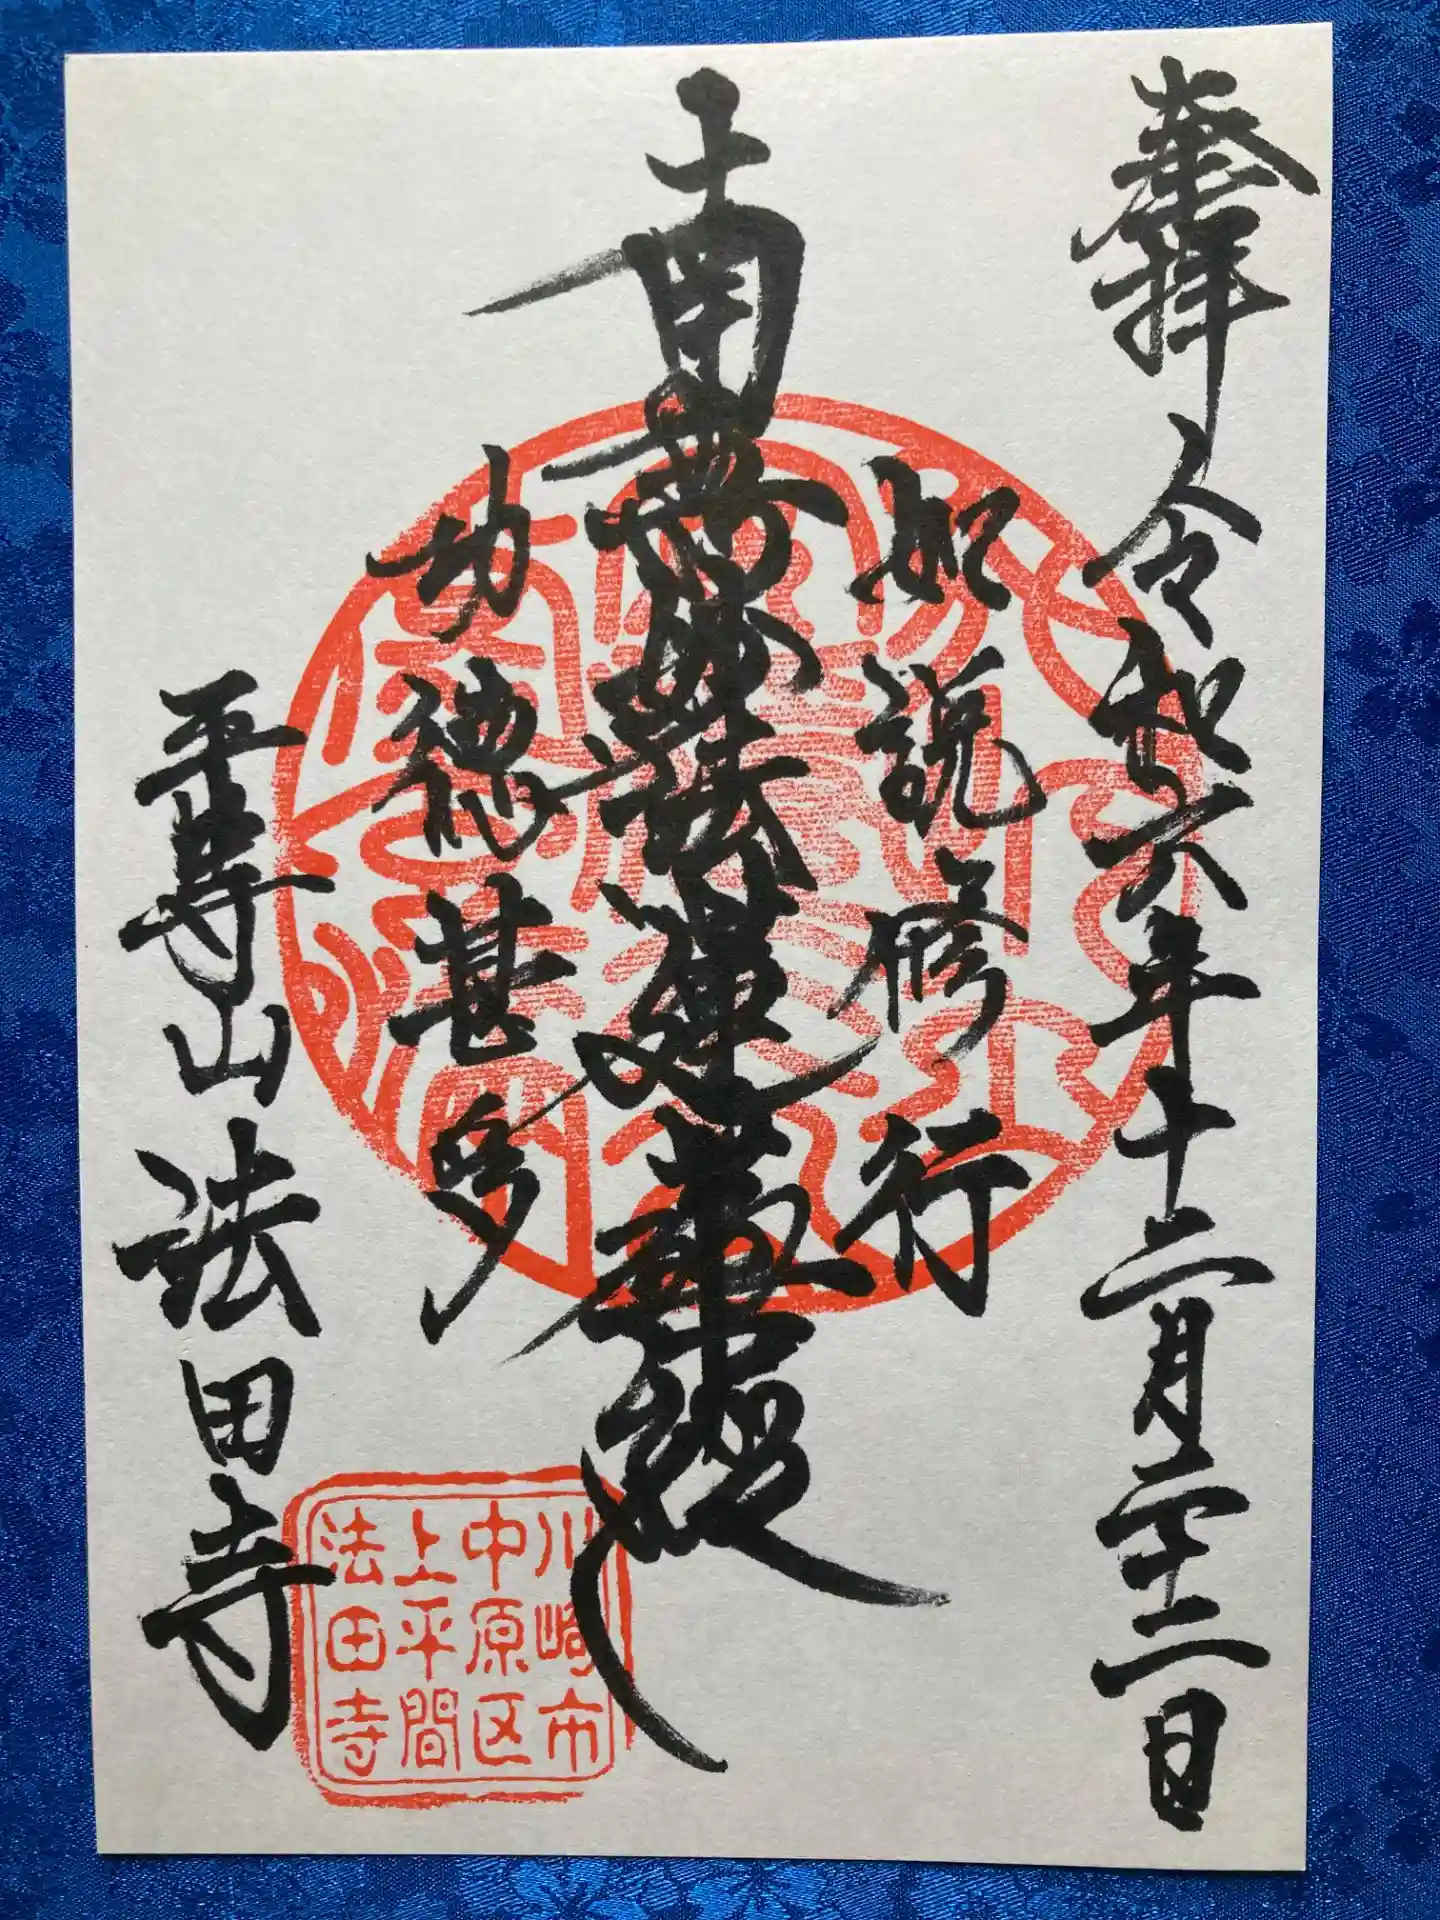 奉拝 令和六年十二月二十二日
如説修行
南無妙法蓮華経
功徳甚多
平等山 法田寺
川崎市
中原区
上平間
法田寺